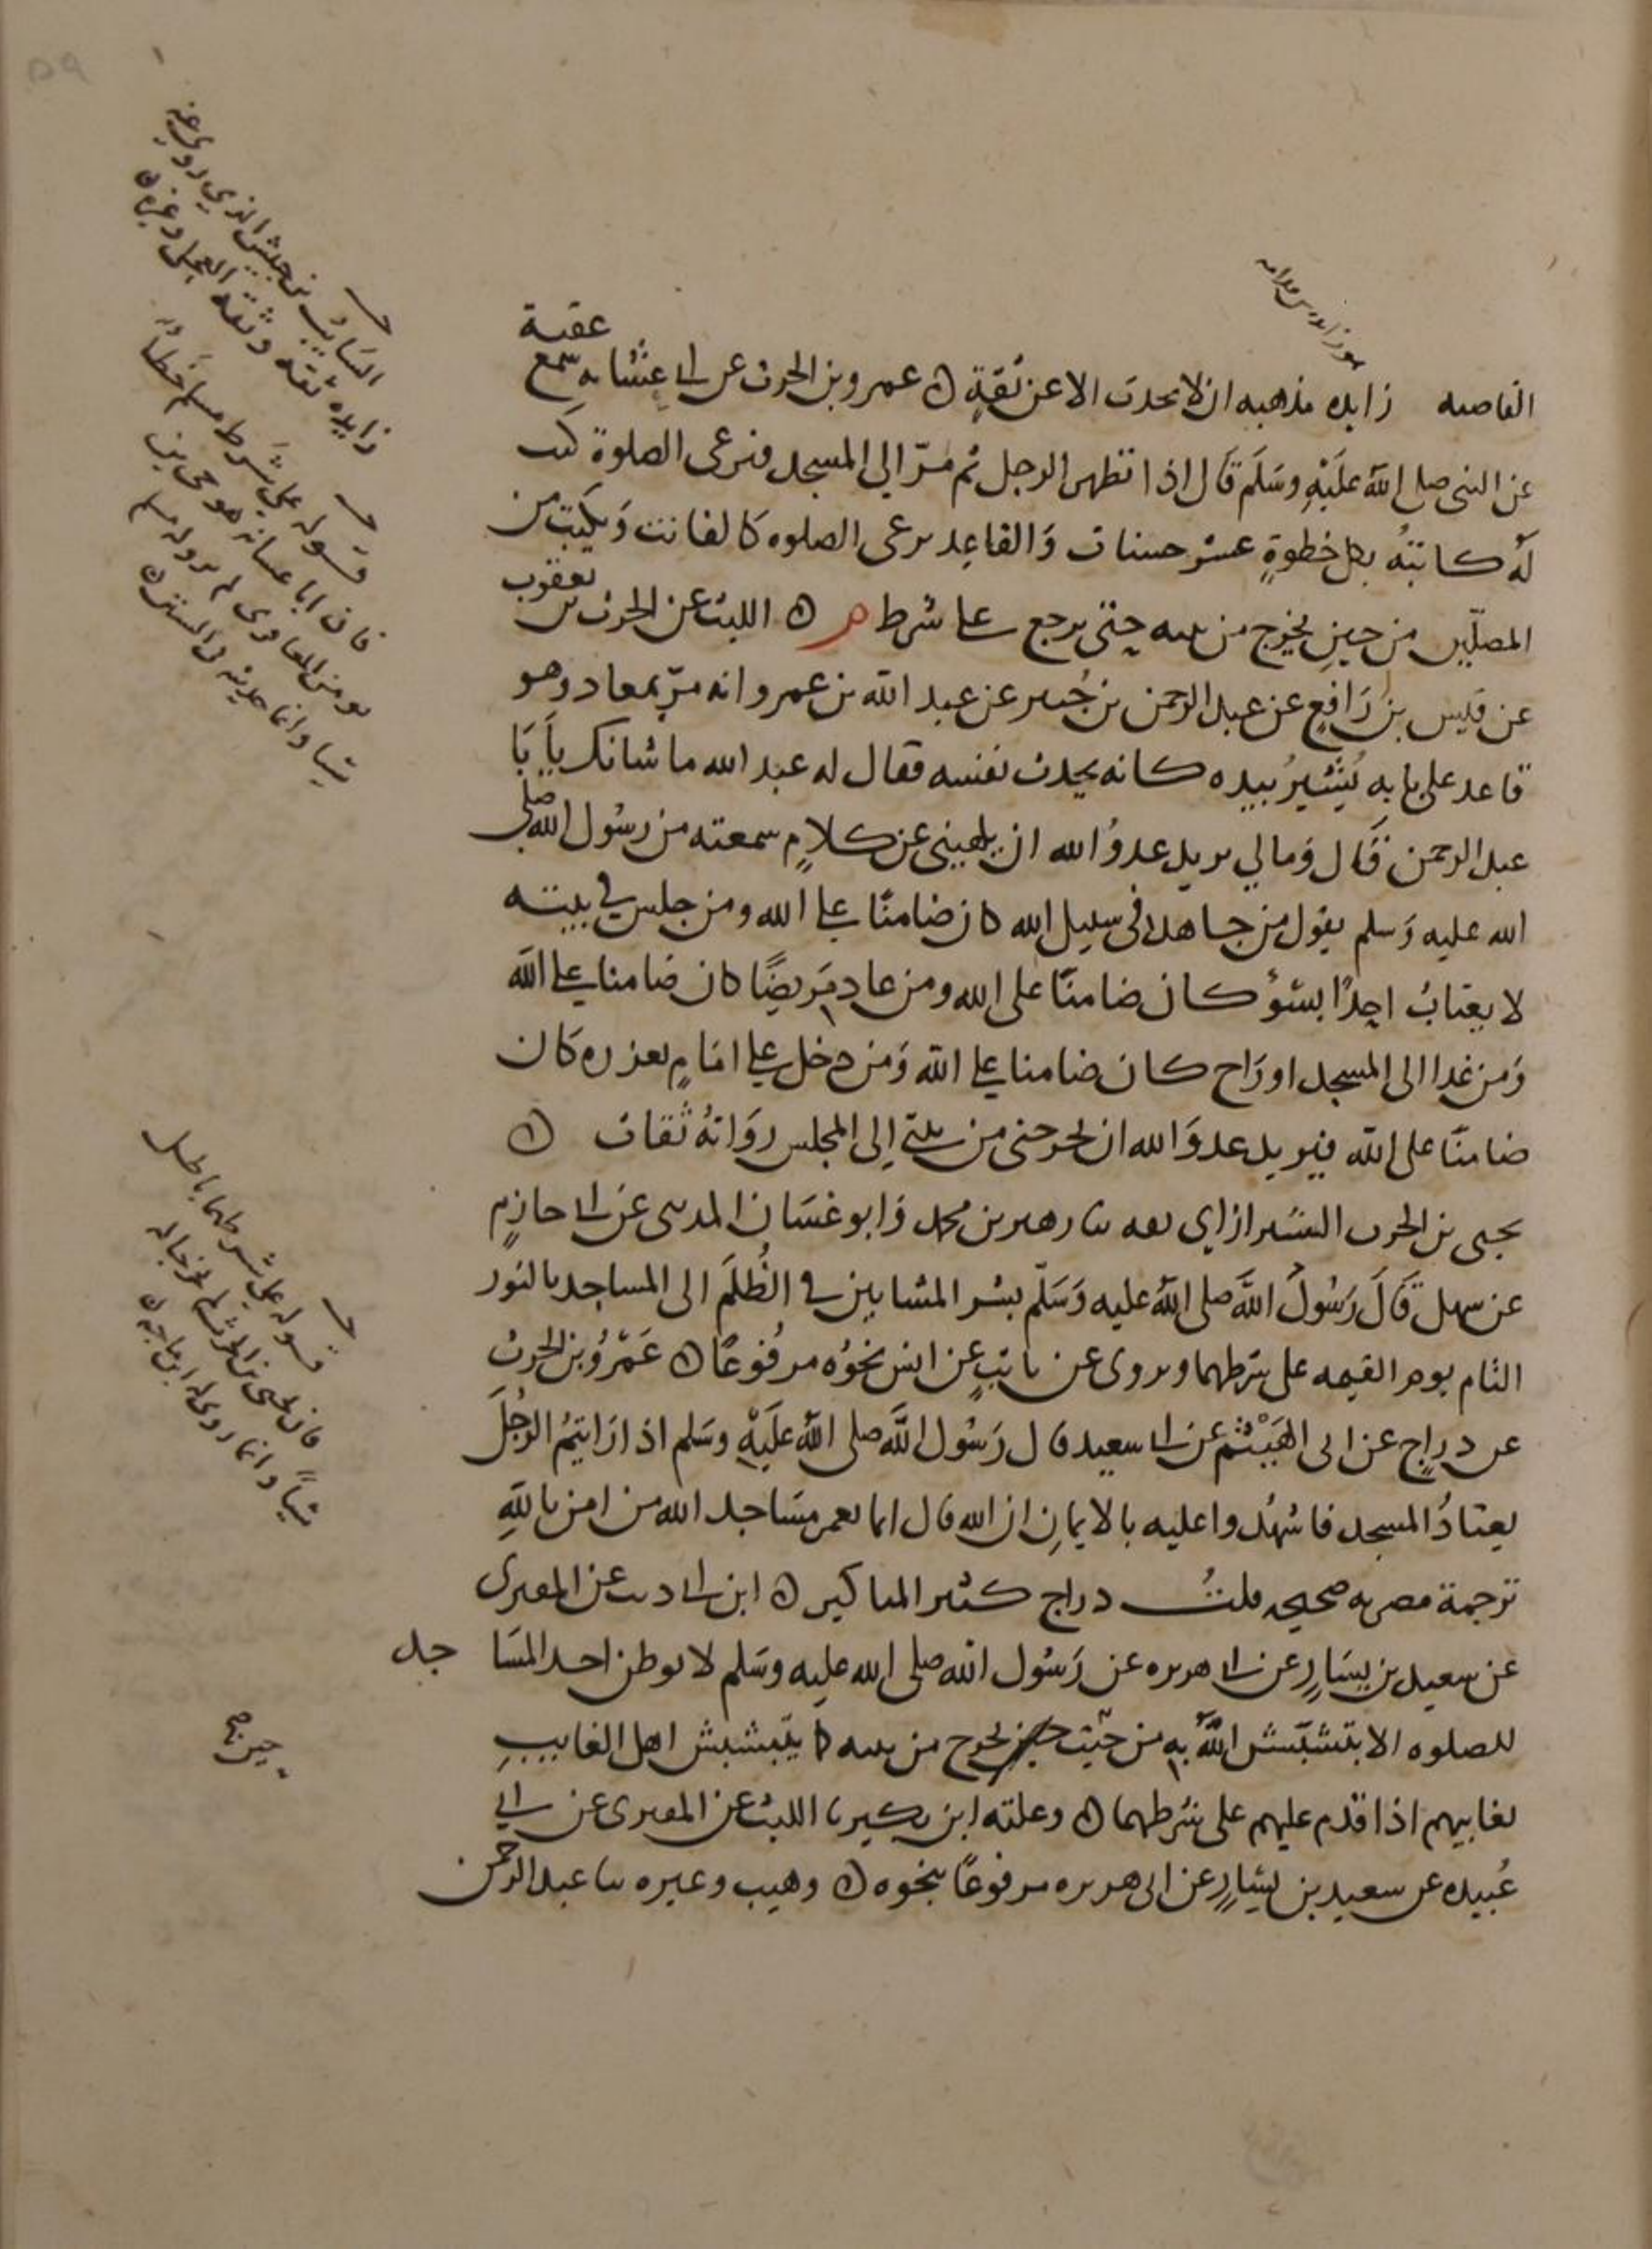 القاصيه زايده مذهبه ان لا يحدث الا عن ثقةٍ ه عمرو بن الحرث عن ابي عشانه سمع عقبة
عن النبي صلى الله عليه وسلم قال اذا تطهر الرجل ثم مرّ الى المسجد فيرعى الصلوة كتب
له كاتبهُ بكل خطوةٍ عشر حسنات والقاعد يرعى الصلوه كالقانت ويكتب من
المصلين من حين يخرج من بيته حتى يرجع على شرط م ه الليث عن الحرث بن يعقوب
عن قيس بن رافع عن عبد الرحمن بن جُبير عن عبد الله بن عمرو انه مرّ بمعاذ وهو
قاعد على بابه يُشيرُ بيده كانه يحدث نفسه فقال له عبد الله ما شانك يا با
عبد الرحمن قال ومالي يريد عدوُ الله ان يلهيني عن كلامٍ سمعته من رسول الله صلى
الله عليه وسلم يقول من جاهد في سبيل الله كان ضامنًا على الله ومن جلس في بيته
لا يغتابُ احدًا بسوٍ كان ضامنًا على الله ومن عاد مريضًا كان ضامنا على الله
ومن غدا الى المسجد او راح كان ضامنا على الله ومن دخل على امامٍ يعزره كان
ضامنًا على الله فيريد عدوَ الله ان يخرجني من بيتي الى المجلس رواتهُ ثقات ه
يحيى بن الحرث الشيرازي ثقه ثنا زهير بن محمد وابو غسان المدني عن ابي حازمٍ
عن سهل قال رسُولُ الله صلى الله عليه وسلم بشر المشايين في الظُلَم الى المساجد بالنور
التام يوم القيمه على شرطهما ويروى عن ثابتٍ عن انس نحوُه مرفُوعًا ه عَمْرُو بن الحرث
عن دراجٍ عن ابي الهَيْثم عن ابي سعيد قال رسُول الله صلى الله عليه وسلم اذا رايتمُ الرجُلَ
يعتادُ المسجد فاشهدُوا عليه بالايمانِ ان الله قال انما يعمر مساجد الله من امن باللهِ
ترجمة مصريه صحيحه قلتُ دراج كثير المناكير ه ابن ابي ذيب عن المقبري
عن سعيد بن يسارٍ عن ابي هريره عن رسُول الله صلى الله عليه وسلم لا يوطن احد المساجد
للصلوه الا يتبشبش الله به من حيث يخرج من بيته كما يتبشبش اهل الغايبِ
بغايبهم اذا قدم عليهم على شرطهما ه وعلته ابن بكير ثنا الليث عن المقبري عن ابي
عُبيده عن سعيد بن يسارٍ عن ابي هريره مرفوعًا بنحوه ه وهيب وغيره ثنا عبد الرحمن
السايب بن حبيش الذي روى عنه
زايده ثقه وثقه العجلي وغيره ه
قوله على شرط مسلم خطأ
فان ابا عشانه هو حي بن
يومن المعافري لم يرو له مسلم
شيا وانما حديثه في السنن ه
قوله على شرطهما باطل
فان يحيى بن الحرث لم يخرجا له
شيأ وانما روى له ابن ماجه ه
حين صح